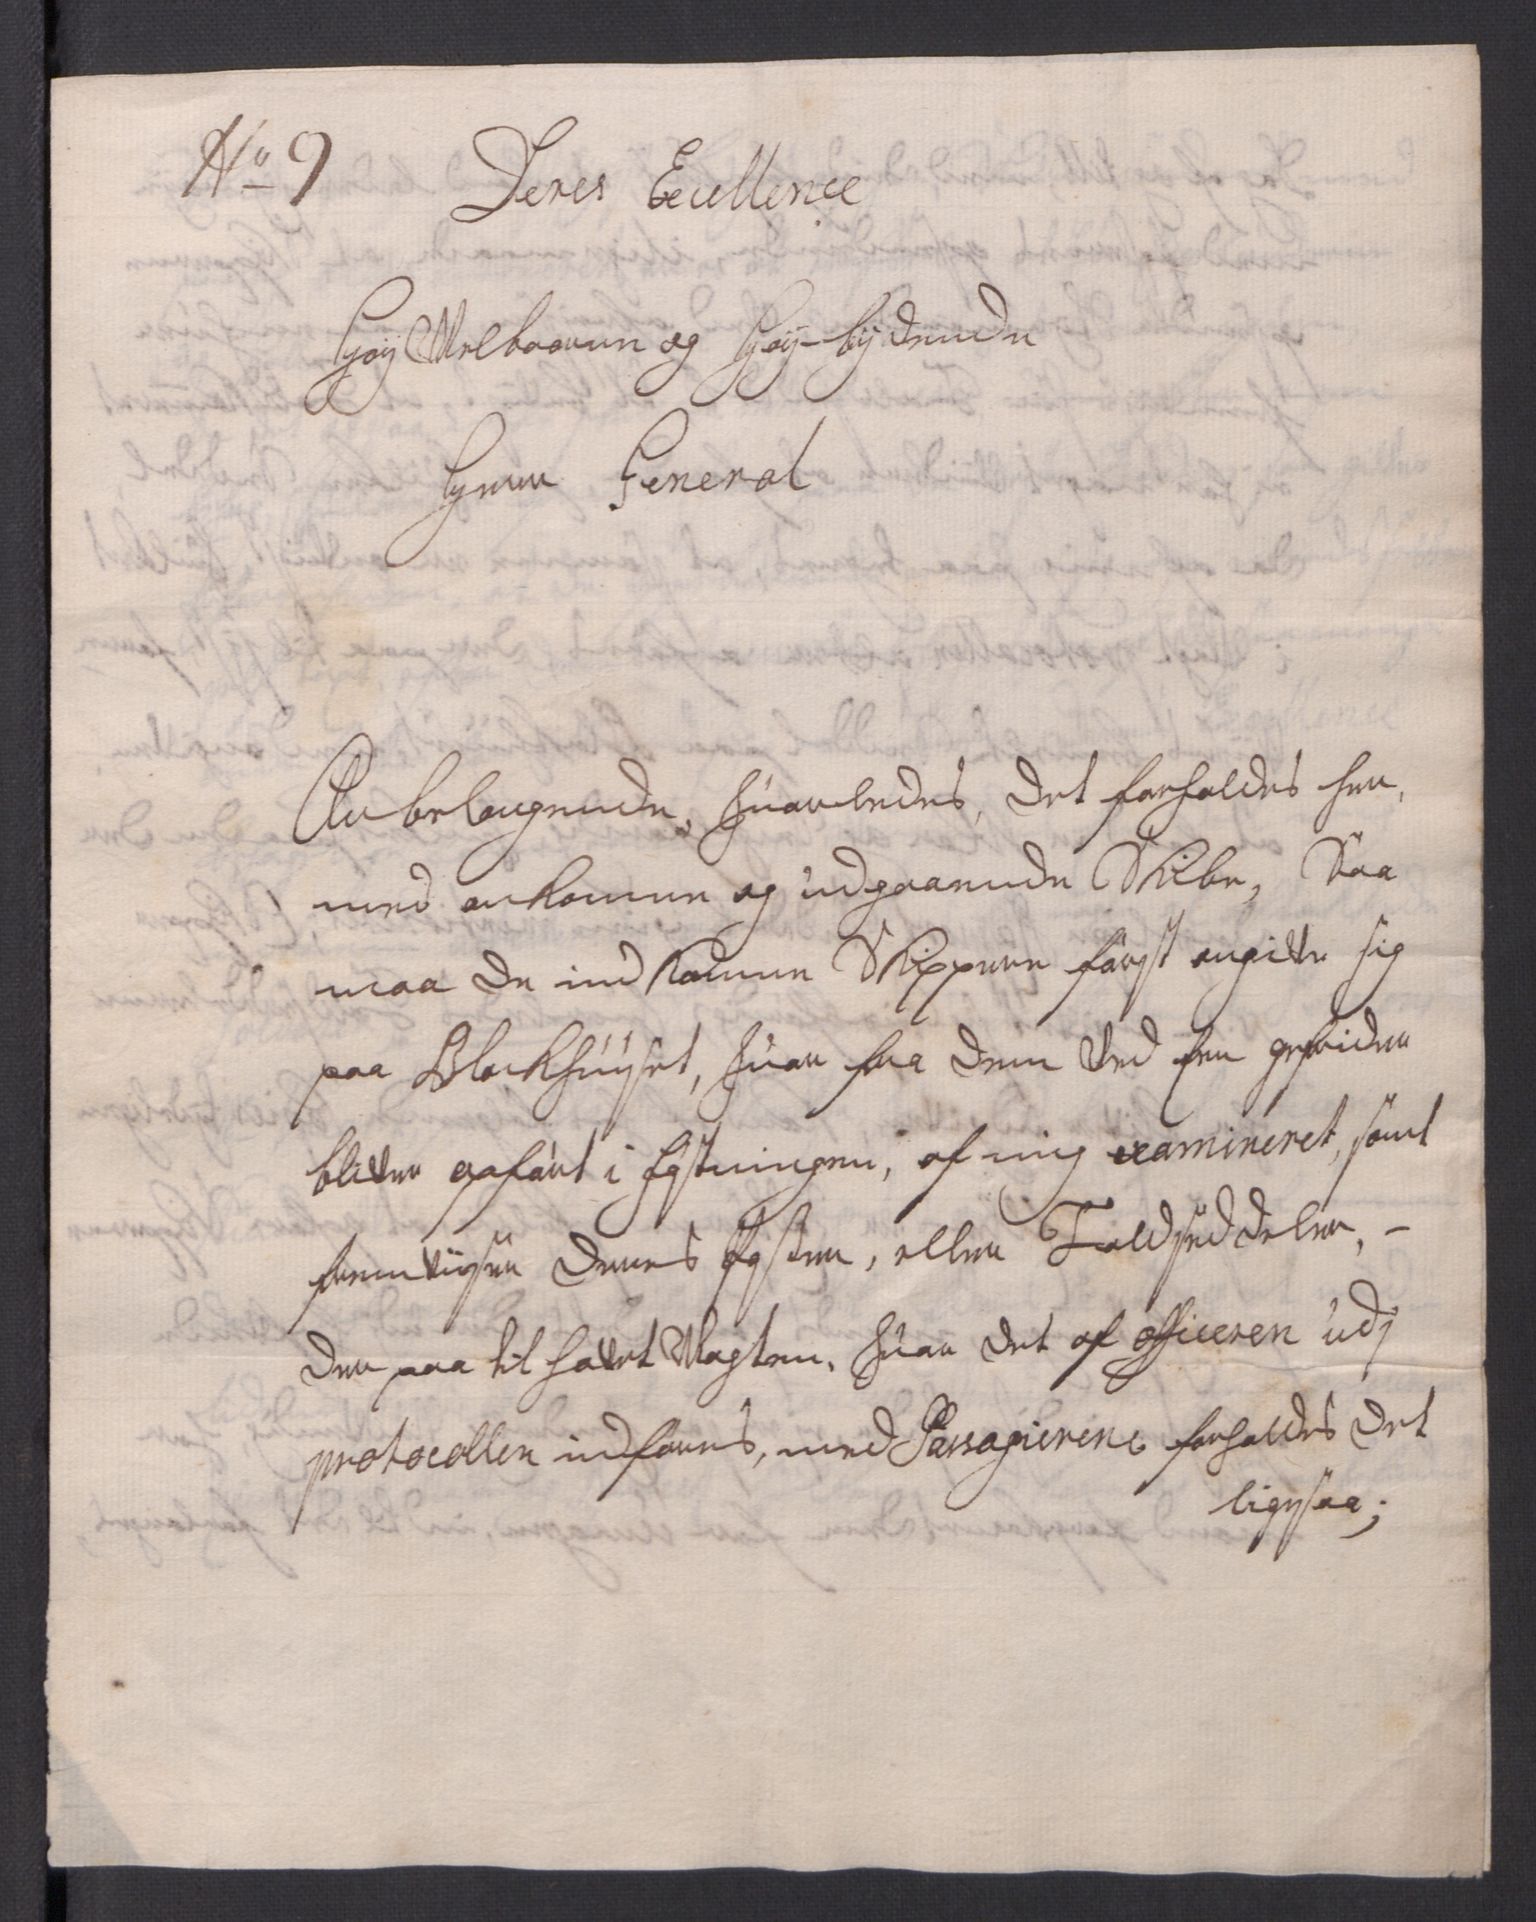 No 9
Deres Excellence
Høy Welbaarne og Høy-bydende
Herre General
Anbelangende, huorledes, det forholdes her,
med ankomne og udgaaende Skibe, Saa
maa de indkomne Skippere først angive sig
paa Blockhuuset, huor fra dem ved een gefreider
bliver opført i festningen, af mig examineret, samt
fremviiser deres Pester, eller Toldseddeler, -
der paa til hovet Wagten, huor det af officeren udj
protocollen indføres, med Passagierene forholdes det
ligesaa;